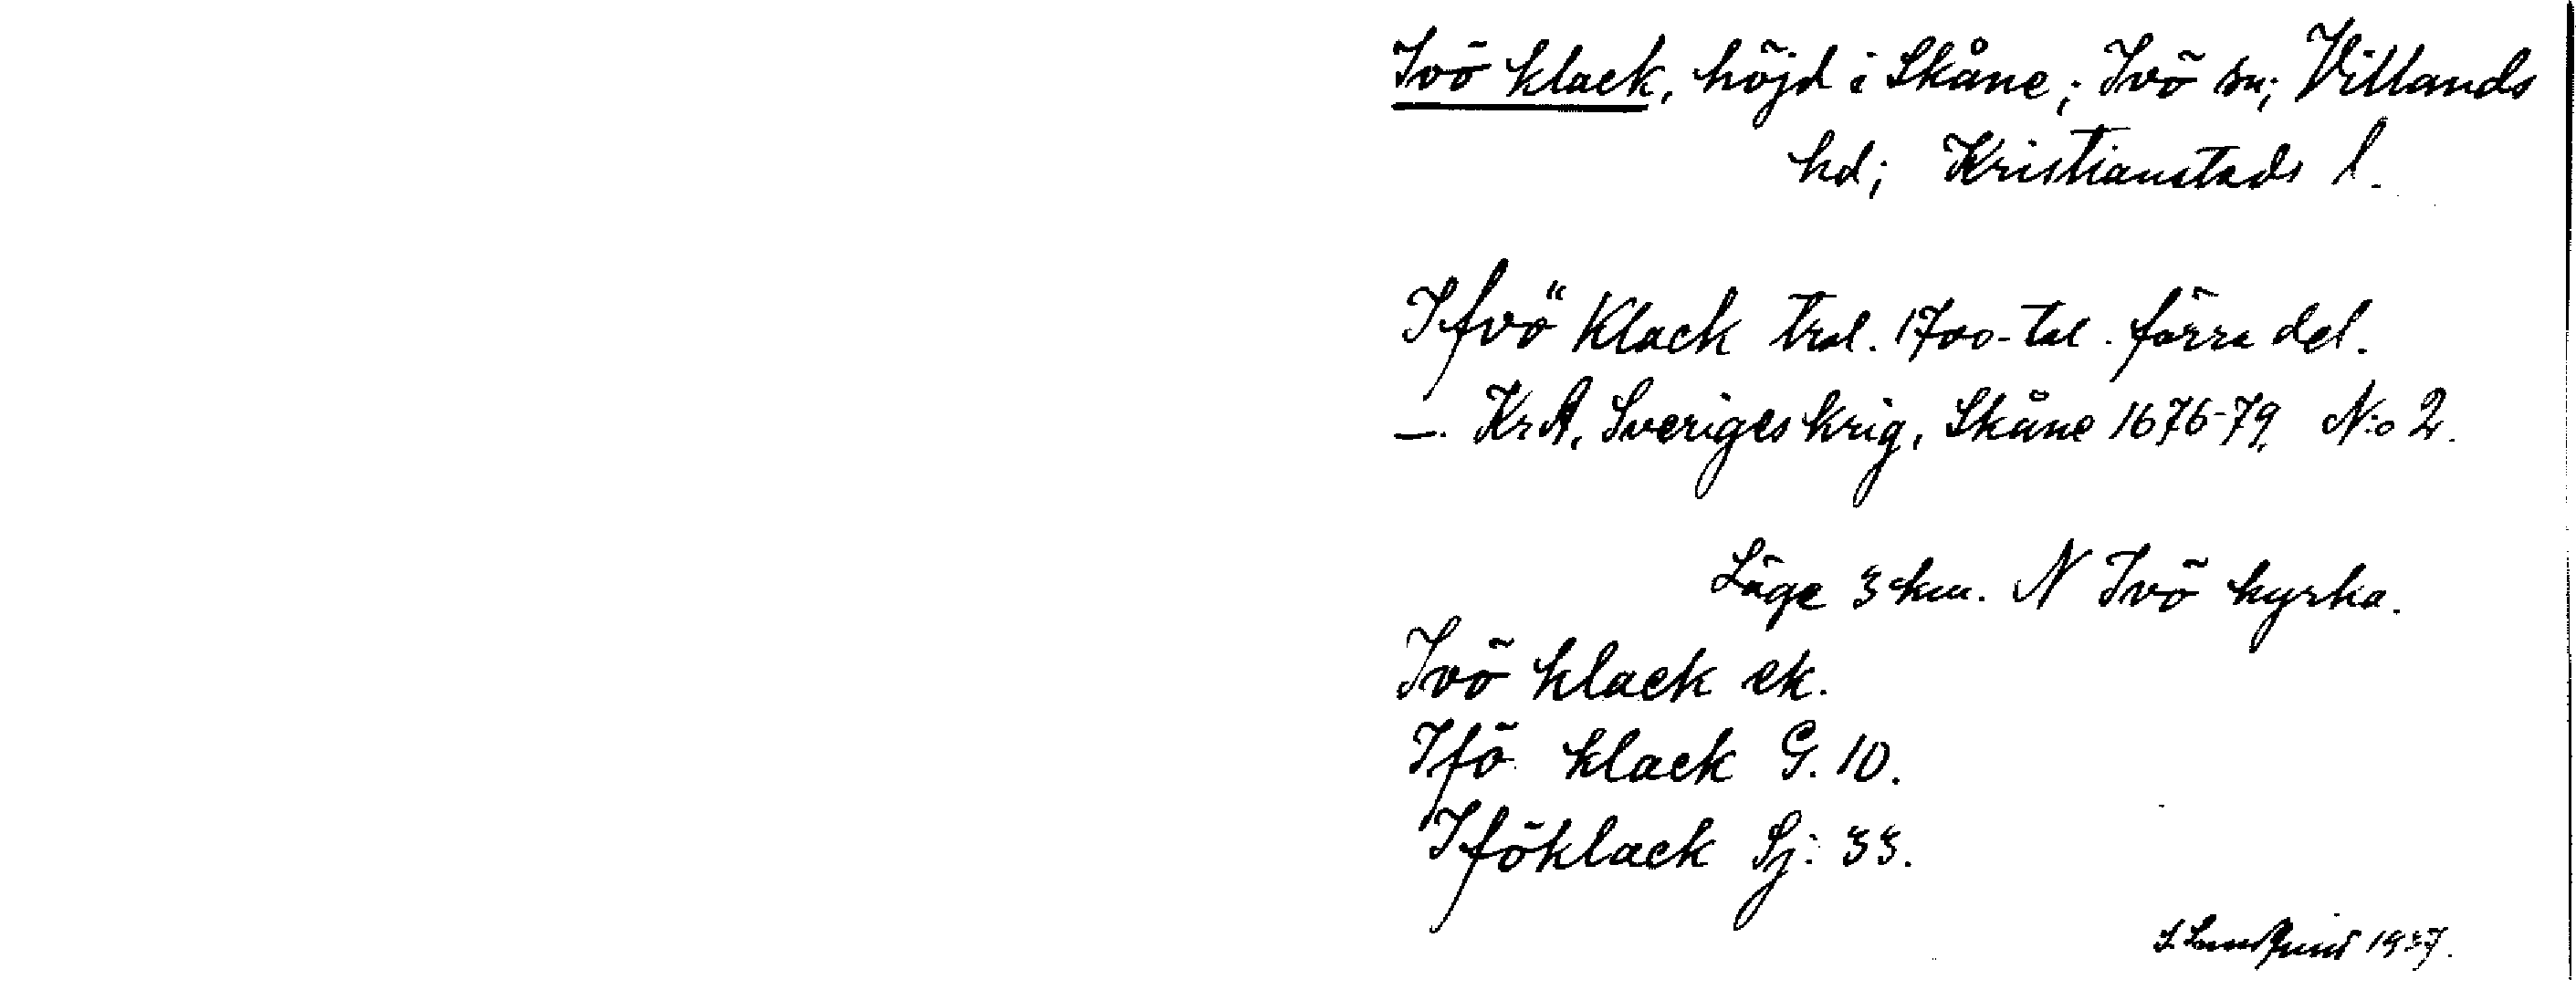 Ivö klack, höjd i Skåne; Ivö sn; Villands
hd; Kristianstads l.
Ifvö Klack trol. 1700-tal. förra del.
—. KrA, Sveriges krig, Skåne 1676-79, N:o 2.
Läge 3 km. N Ivö kyrka.
Ivö klack ek.
Ifö klack G. 10.
Iföklack Sj: 33.
S. Lundquist 1937.